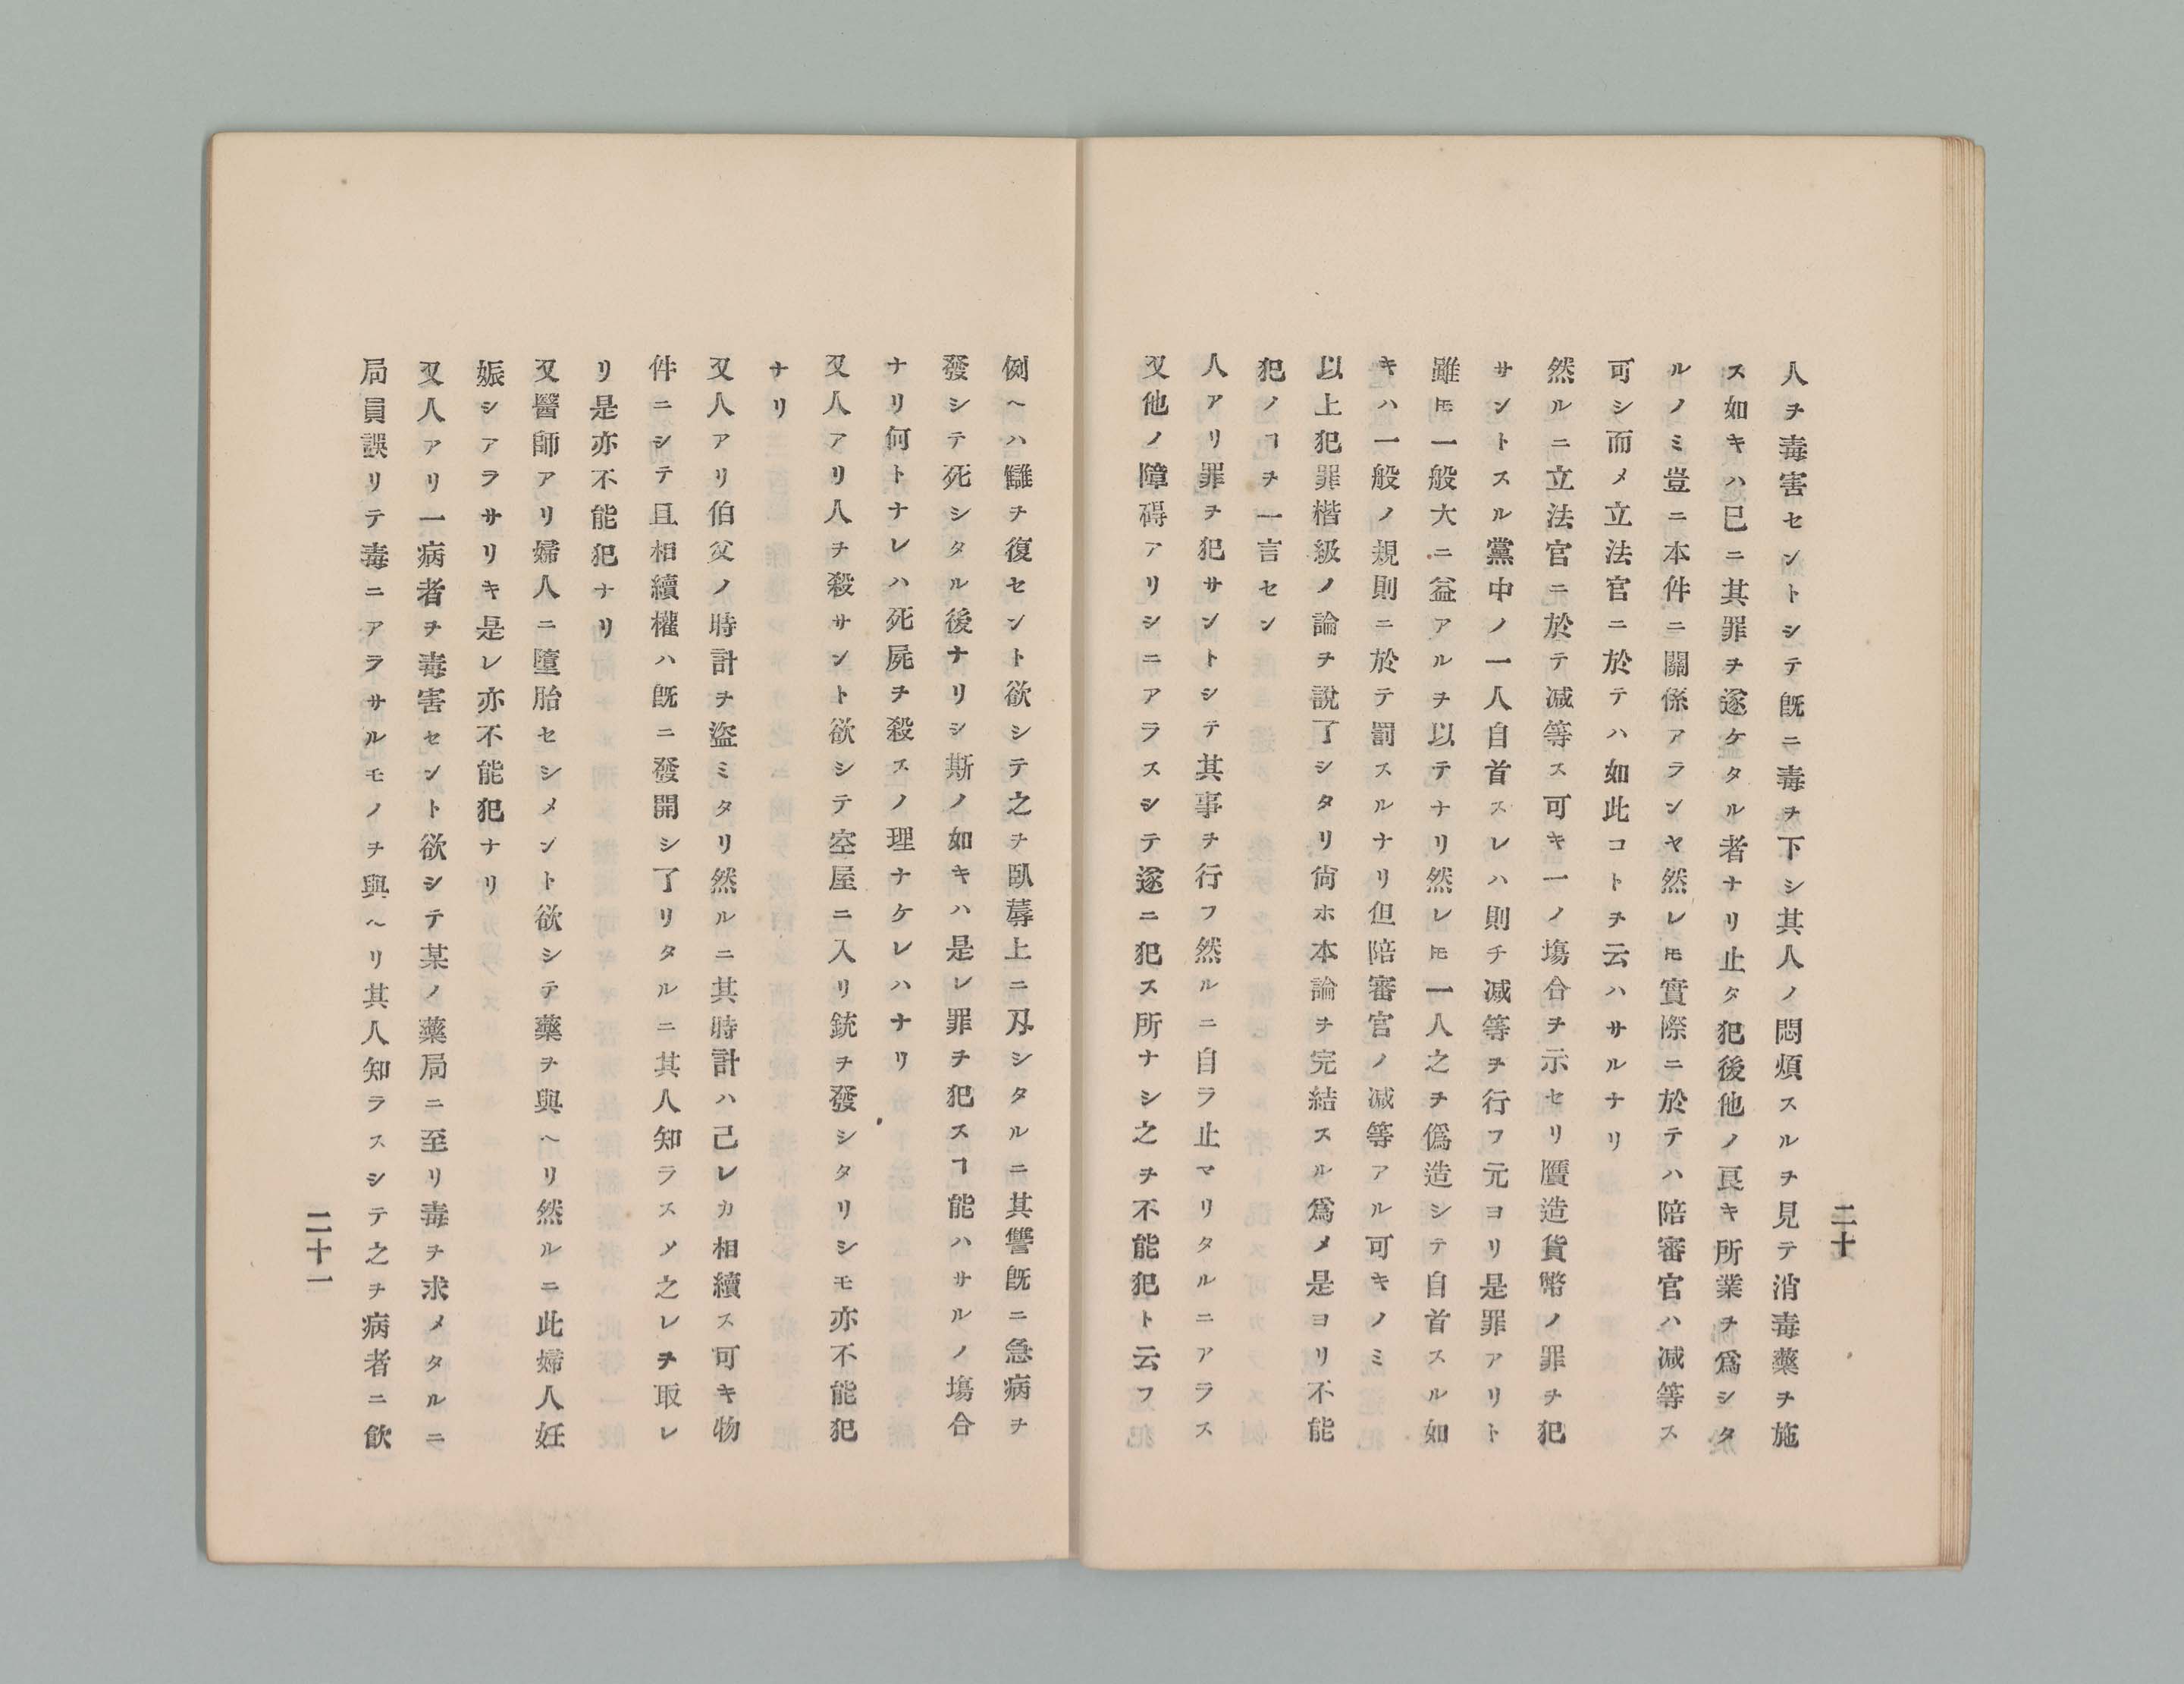 二十
人ヲ毒害セントシテ既ニ毒ヲ下シ其人ノ悶煩スルヲ見テ消毒藥ヲ施
ス如キハ已ニ其罪ヲ遂ケタル者ナリ止タ犯後他ノ良キ所業ヲ爲シタ
ルノミ豈ニ本件ニ關係アランヤ然レ𪜈實際ニ於テハ陪審官ハ减等ス
可シ而メ立法官ニ於テハ如此コトヲ云ハサルナリ
然ルニ立法官ニ於テ减等ス可キ一ノ塲合ヲ示セリ贋造貨幣ノ罪ヲ犯
サントスル黨中ノ一人自首スレハ則チ减等ヲ行フ元ヨリ是罪アリト
雖𪜈一般大ニ益アルヲ以テナリ然レ𪜈一人之ヲ僞造シテ自首スル如
キハ一般ノ規則ニ於テ罰スルナリ但陪審官ノ减等アル可キノミ
以上犯罪楷級ノ論ヲ說了シタリ尙ホ本論ヲ完結スル爲メ是ヨリ不能
犯ノヿヲ一言セン
人アリ罪ヲ犯サントシテ其事ヲ行フ然ルニ自ラ止マリタルニアラス
又他ノ障碍アリシニアラスシテ遂ニ犯ス所ナシ之ヲ不能犯ト云フ
例ヘハ讎ヲ復セント欲シテ之ヲ臥蓐上ニ刄シタルニ其讐既ニ急病ヲ
發シテ死シタル後ナリシ斯ノ如キハ是レ罪ヲ犯スヿ能ハサルノ塲合
ナリ何トナレハ死屍ヲ殺スノ理ナケレハナリ
又人アリ人ヲ殺サント欲シテ空屋ニ入リ銃ヲ發シタリシモ亦不能犯
ナリ
又人アリ伯父ノ時計ヲ盜ミタリ然ルニ其時計ハ己レカ相續ス可キ物
件ニシテ且相續權ハ既ニ發開シ了リタルニ其人知ラスメ之レヲ取レ
リ是亦不能犯ナリ
又醫師アリ婦人ニ墮胎セシメント欲シテ藥ヲ與ヘリ然ルニ此婦人妊
娠シアラサリキ是レ亦不能犯ナリ
又人アリ一病者ヲ毒害セント欲シテ某ノ藥局ニ至リ毒ヲ求メタルニ
局員誤リテ毒ニアラサルモノヲ與ヘリ其人知ラスシテ之ヲ病者ニ飮
二十一